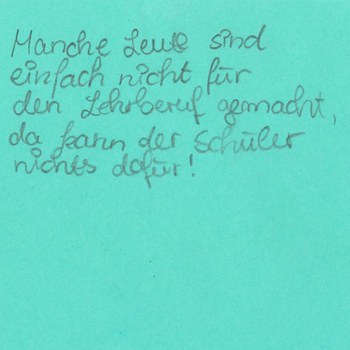 Manche Leute sind
einfach nicht für
den Lehrberuf gemacht,
da kann der Schüler
nichts dafür!